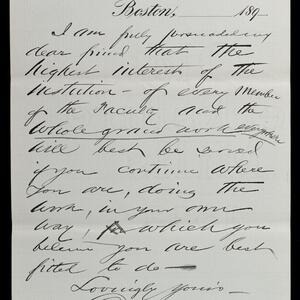 Boston, 189
I am fully persuaded my
dear friend that the
highest interests of the
Institution - of every member
of the Faculty and the
whole grand work everywhere
will best be served
if you continue where
you are, doing the
work, in your own
way, for which you
believe you are best
fitted to do -
Lovingly yours -